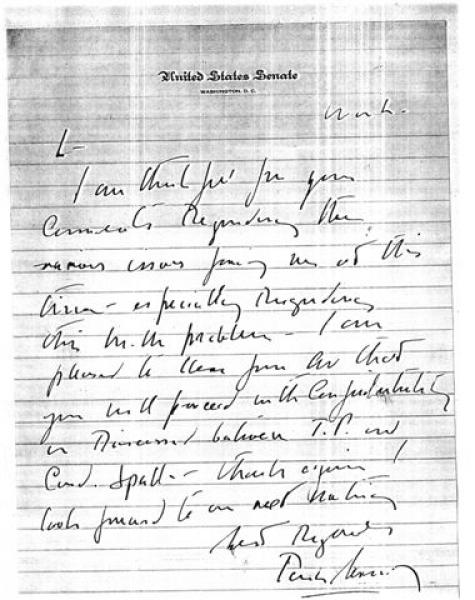 United States Senate
WASHINGTON, D. C.
L-
I am thankful for your
comments regarding the
various issues facing me at this
time - especially regarding
this problem - I am
pleased to learn from that
you will proceed with confidentiality
as discussed between T.P. and
Card. Spell. - thanks again!
look forward to our next meeting
best Regards